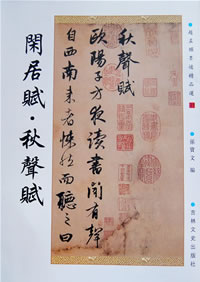 閑居賦·秋聲賦
秋聲賦
歐陽子方夜讀書聞有聲
自西南来者悚然而聽之曰
趙孟頫墨迹精品選
張寶文 編
吉林文史出版社